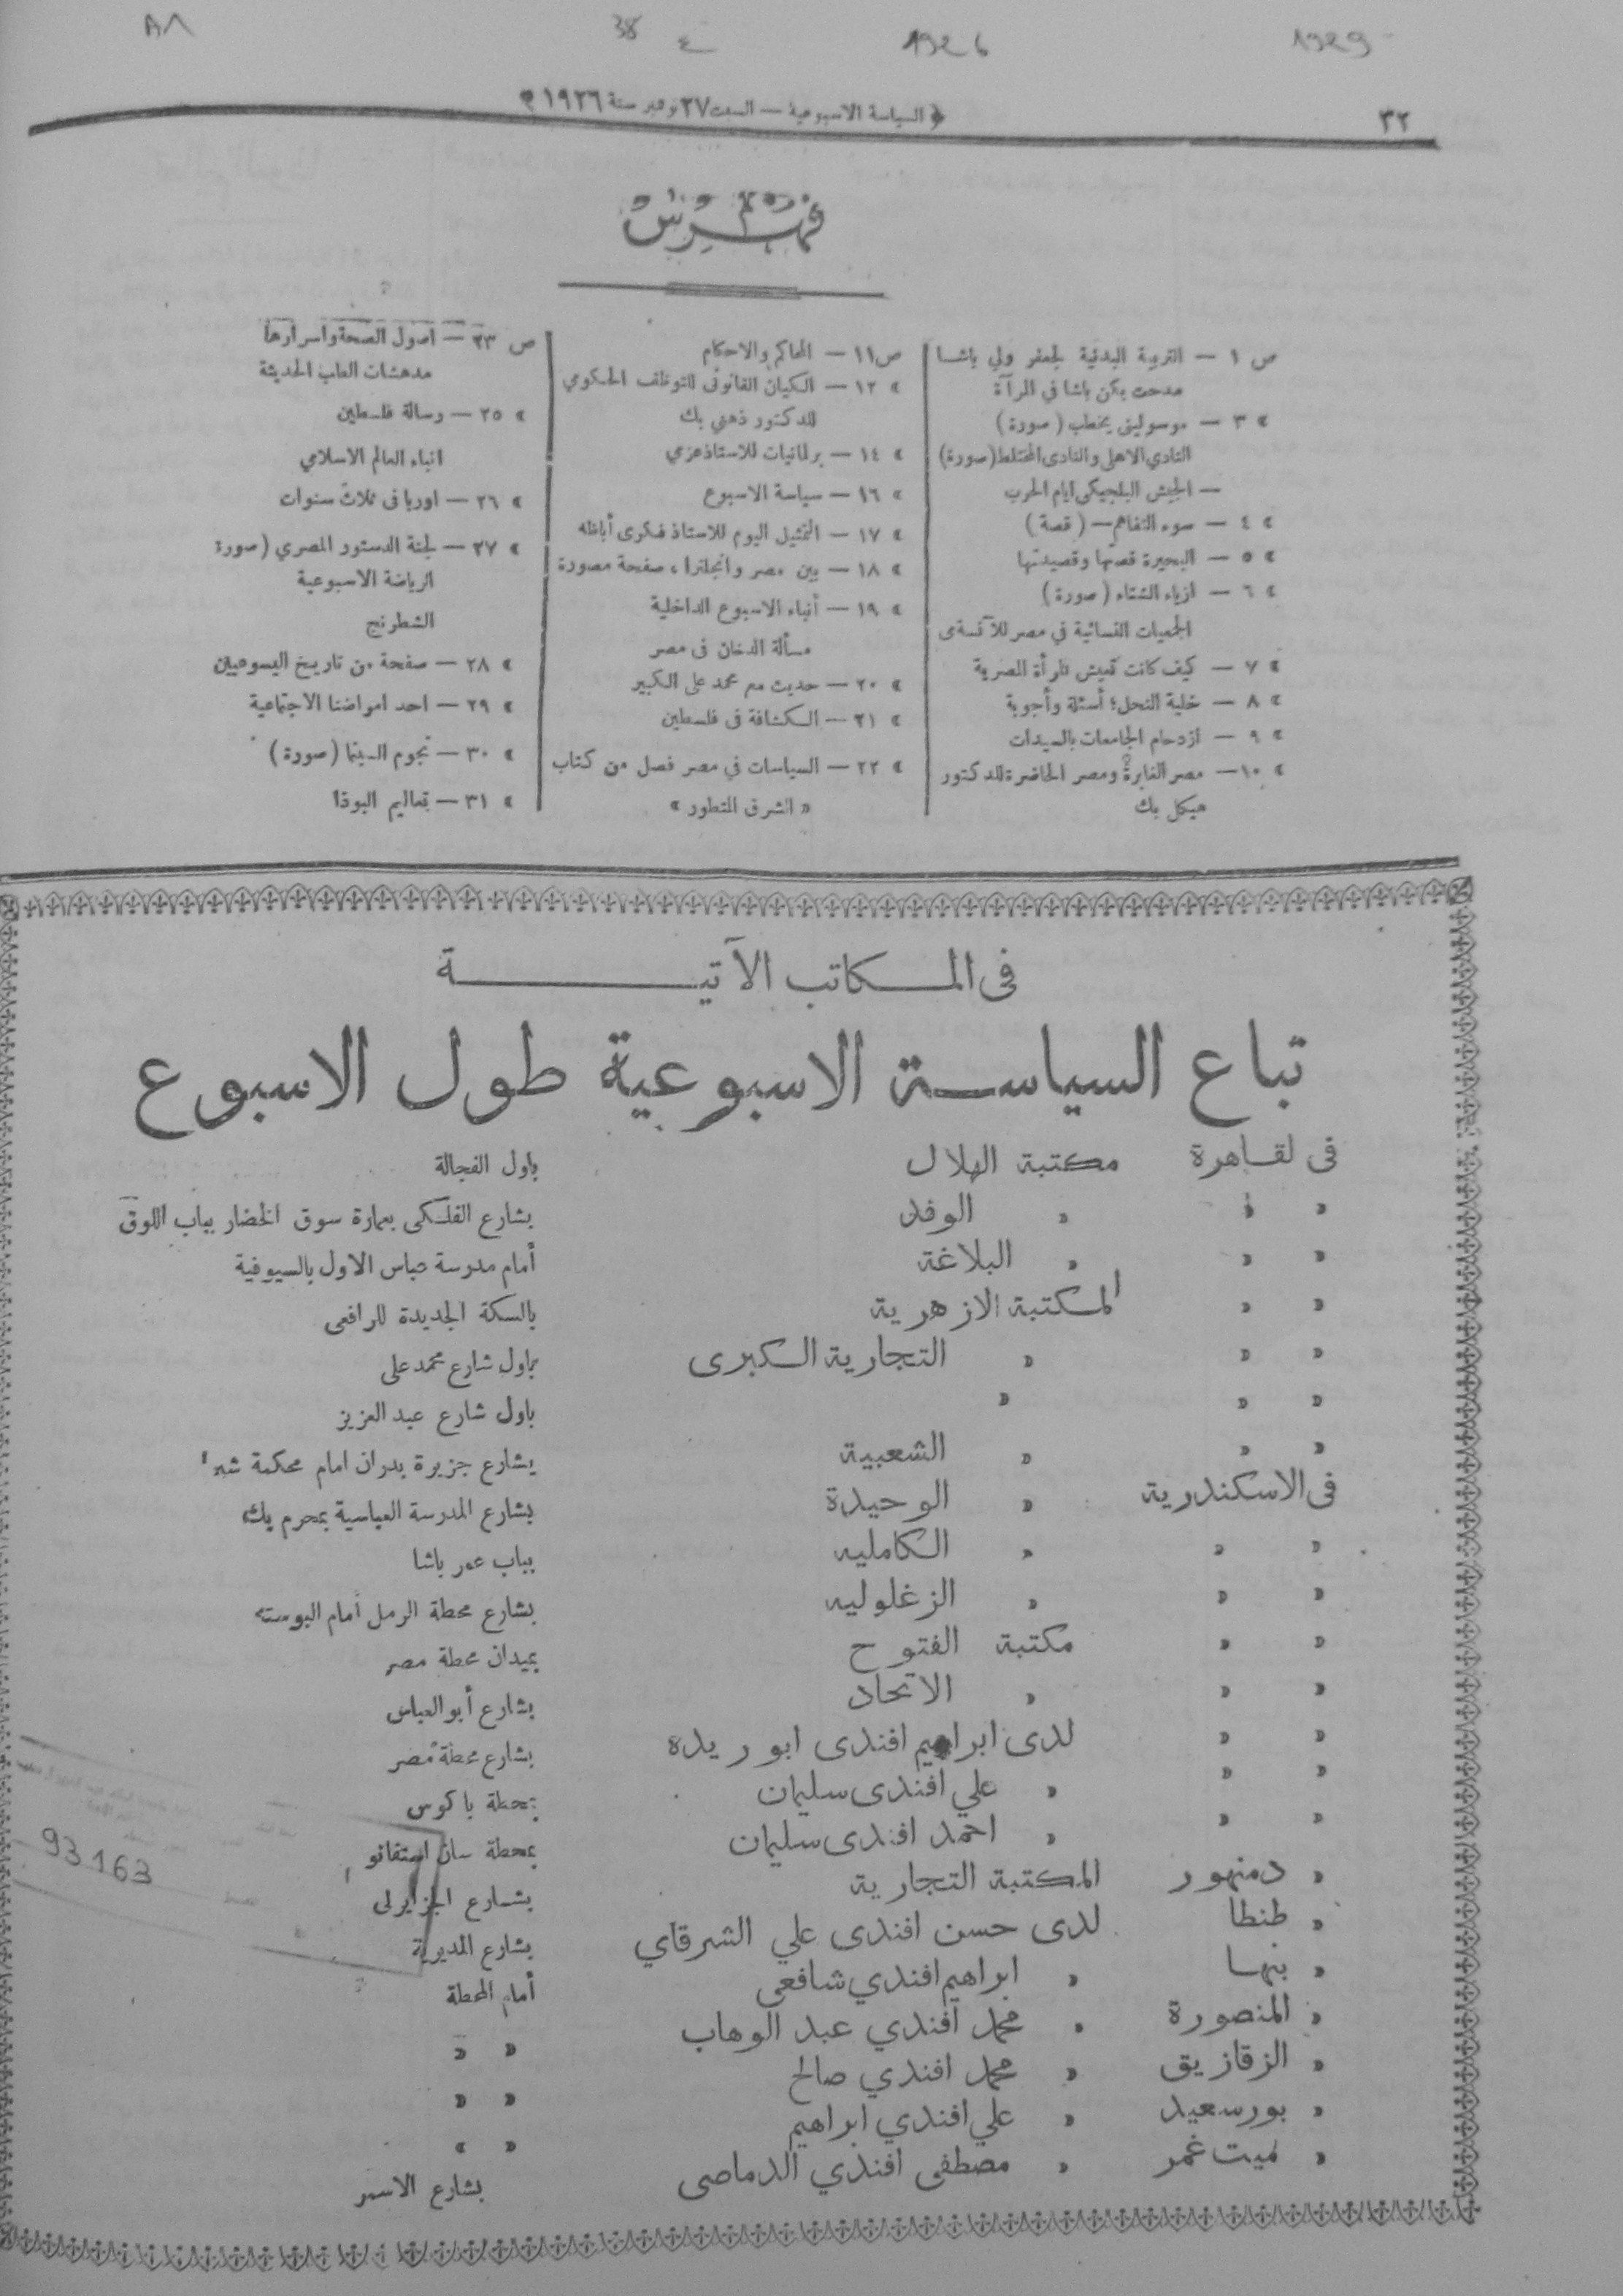 ٨٨ 38 ٤ 1926 1929
٣٢
﴿ السياسة الاسبوعية — السبت ٢٧ نوفمبر سنة ١٩٢٦ ﴾
فهرس
ص ١ — التربية البدنية لجعفر ولي باشا
مدحت يكن باشا في المرآة
» ٣ — موسوليني يخطب (صورة)
النادي الاهلى والنادى المختلط (صورة)
— الجيش البلجيكى ايام الحرب
» ٤ — سوء التفاهم — (قصة)
» ٥ — البحيرة قصتها وقصيدتها
» ٦ — ازياء الشتاء (صورة)
الجمعيات النسائية في مصر للآنسة مى
» ٧ — كيف كانت تعيش المرأة المصرية
» ٨ — خلية النحل؛ أسئلة وأجوبة
» ٩ — ازدحام الجامعات بالسيدات
» ١٠ — مصر الغابرة ومصر الحاضرة للدكتور
هيكل بك
ص ١١ — المحاكم والاحكام
» ١٢ — الكيان القانونى للتوظف الحكومي
للدكتور ذهني بك
» ١٤ — برلمانيات للاستاذ عزمي
» ١٦ — سياسة الاسبوع
» ١٧ — التمثيل اليوم للاستاذ فكرى أباظه
» ١٨ — بين مصر وانجلترا، صفحة مصورة
» ١٩ — أنباء الاسبوع الداخلية
مسألة الدخان فى مصر
» ٢٠ — حديث مع محمد على الكبير
» ٢١ — الكشافة فى فلسطين
» ٢٢ — السياسات في مصر فصل من كتاب
« الشرق المتطور »
ص ٢٣ — اصول الصحة واسرارها
مدهشات الطب الحديثة
» ٢٥ — رسالة فلسطين
انباء العالم الاسلامي
» ٢٦ — اوربا فى ثلاث سنوات
» ٢٧ — لجنة الدستور المصري (صورة
الرياضة الاسبوعية
الشطرنج
» ٢٨ — صفحة من تاريخ اليسوعيين
» ٢٩ — احد امراضنا الاجتماعية
» ٣٠ — نجوم السينما (صورة)
» ٣١ — تعاليم البوذا
فى المكاتب الآتية
تباع السياسة الاسبوعية طول الاسبوع
فى لقاهرة مكتبة الهلال باول الفجالة
» » » الوفد بشارع الفلكى بعمارة سوق الخضار بباب اللوق
» » » البلاغة أمام مدرسة عباس الاول بالسيوفية
» » المكتبة الازهرية بالسكة الجديدة للرافعى
» » » التجارية الكبرى باول شارع محمد على
» » » باول شارع عبد العزيز
» » » الشعبية بشارع جزيرة بدران امام محكمة شبرا
فى الاسكندرية » الوحيدة بشارع المدرسة العباسية بمحرم بك
» » » الكامليه بباب عمر باشا
» » » الزغلوليه بشارع محطة الرمل أمام البوسته
» » مكتبة الفتوح بميدان محطة مصر
» » » الاتحاد بشارع أبو العباس
» » لدى ابراهيم افندى ابو ريده بشارع محطة مصر
» » » علي افندى سليمان بمحطة باكوس
» » » احمد افندى سليمان بمحطة سان استفانو
» دمنهور المكتبة التجارية بشارع الجزايرلى
» طنطا لدى حسن افندى علي الشرقاي بشارع المديرية
» بنها » ابراهيم افندي شافعى أمام المحطة
» المنصورة » محمد افندي عبد الوهاب » »
» الزقازيق » محمد افندي صالح » »
» بورسعيد » علي افندي ابراهيم » »
» ميت غمر » مصطفى افندي الدماصى بشارع الاسمر
93163